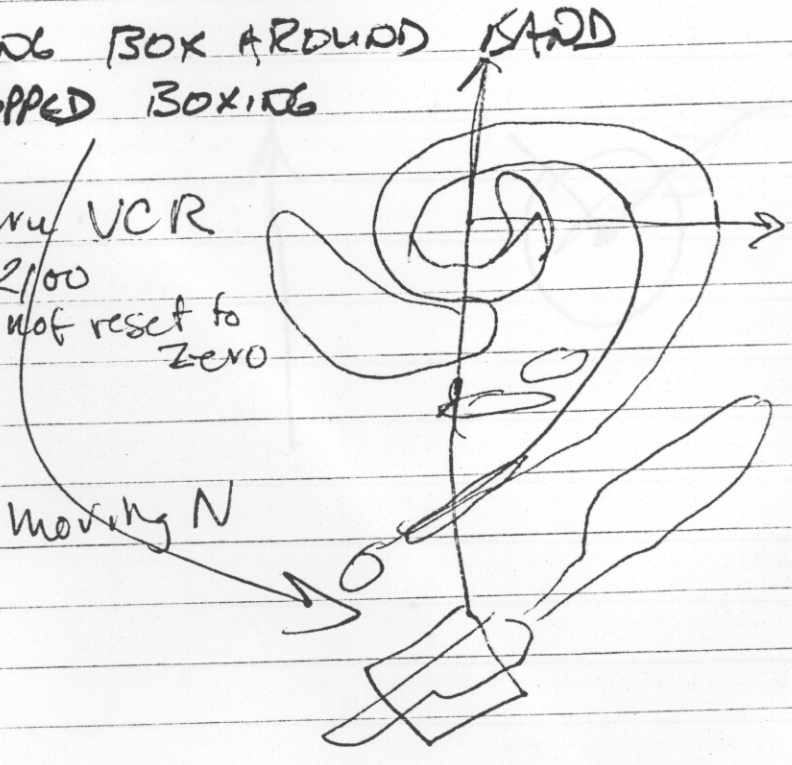 NG BOX AROUND BAND
OPPED BOXING
ru VCR
2100
not reset to
zero
moving N